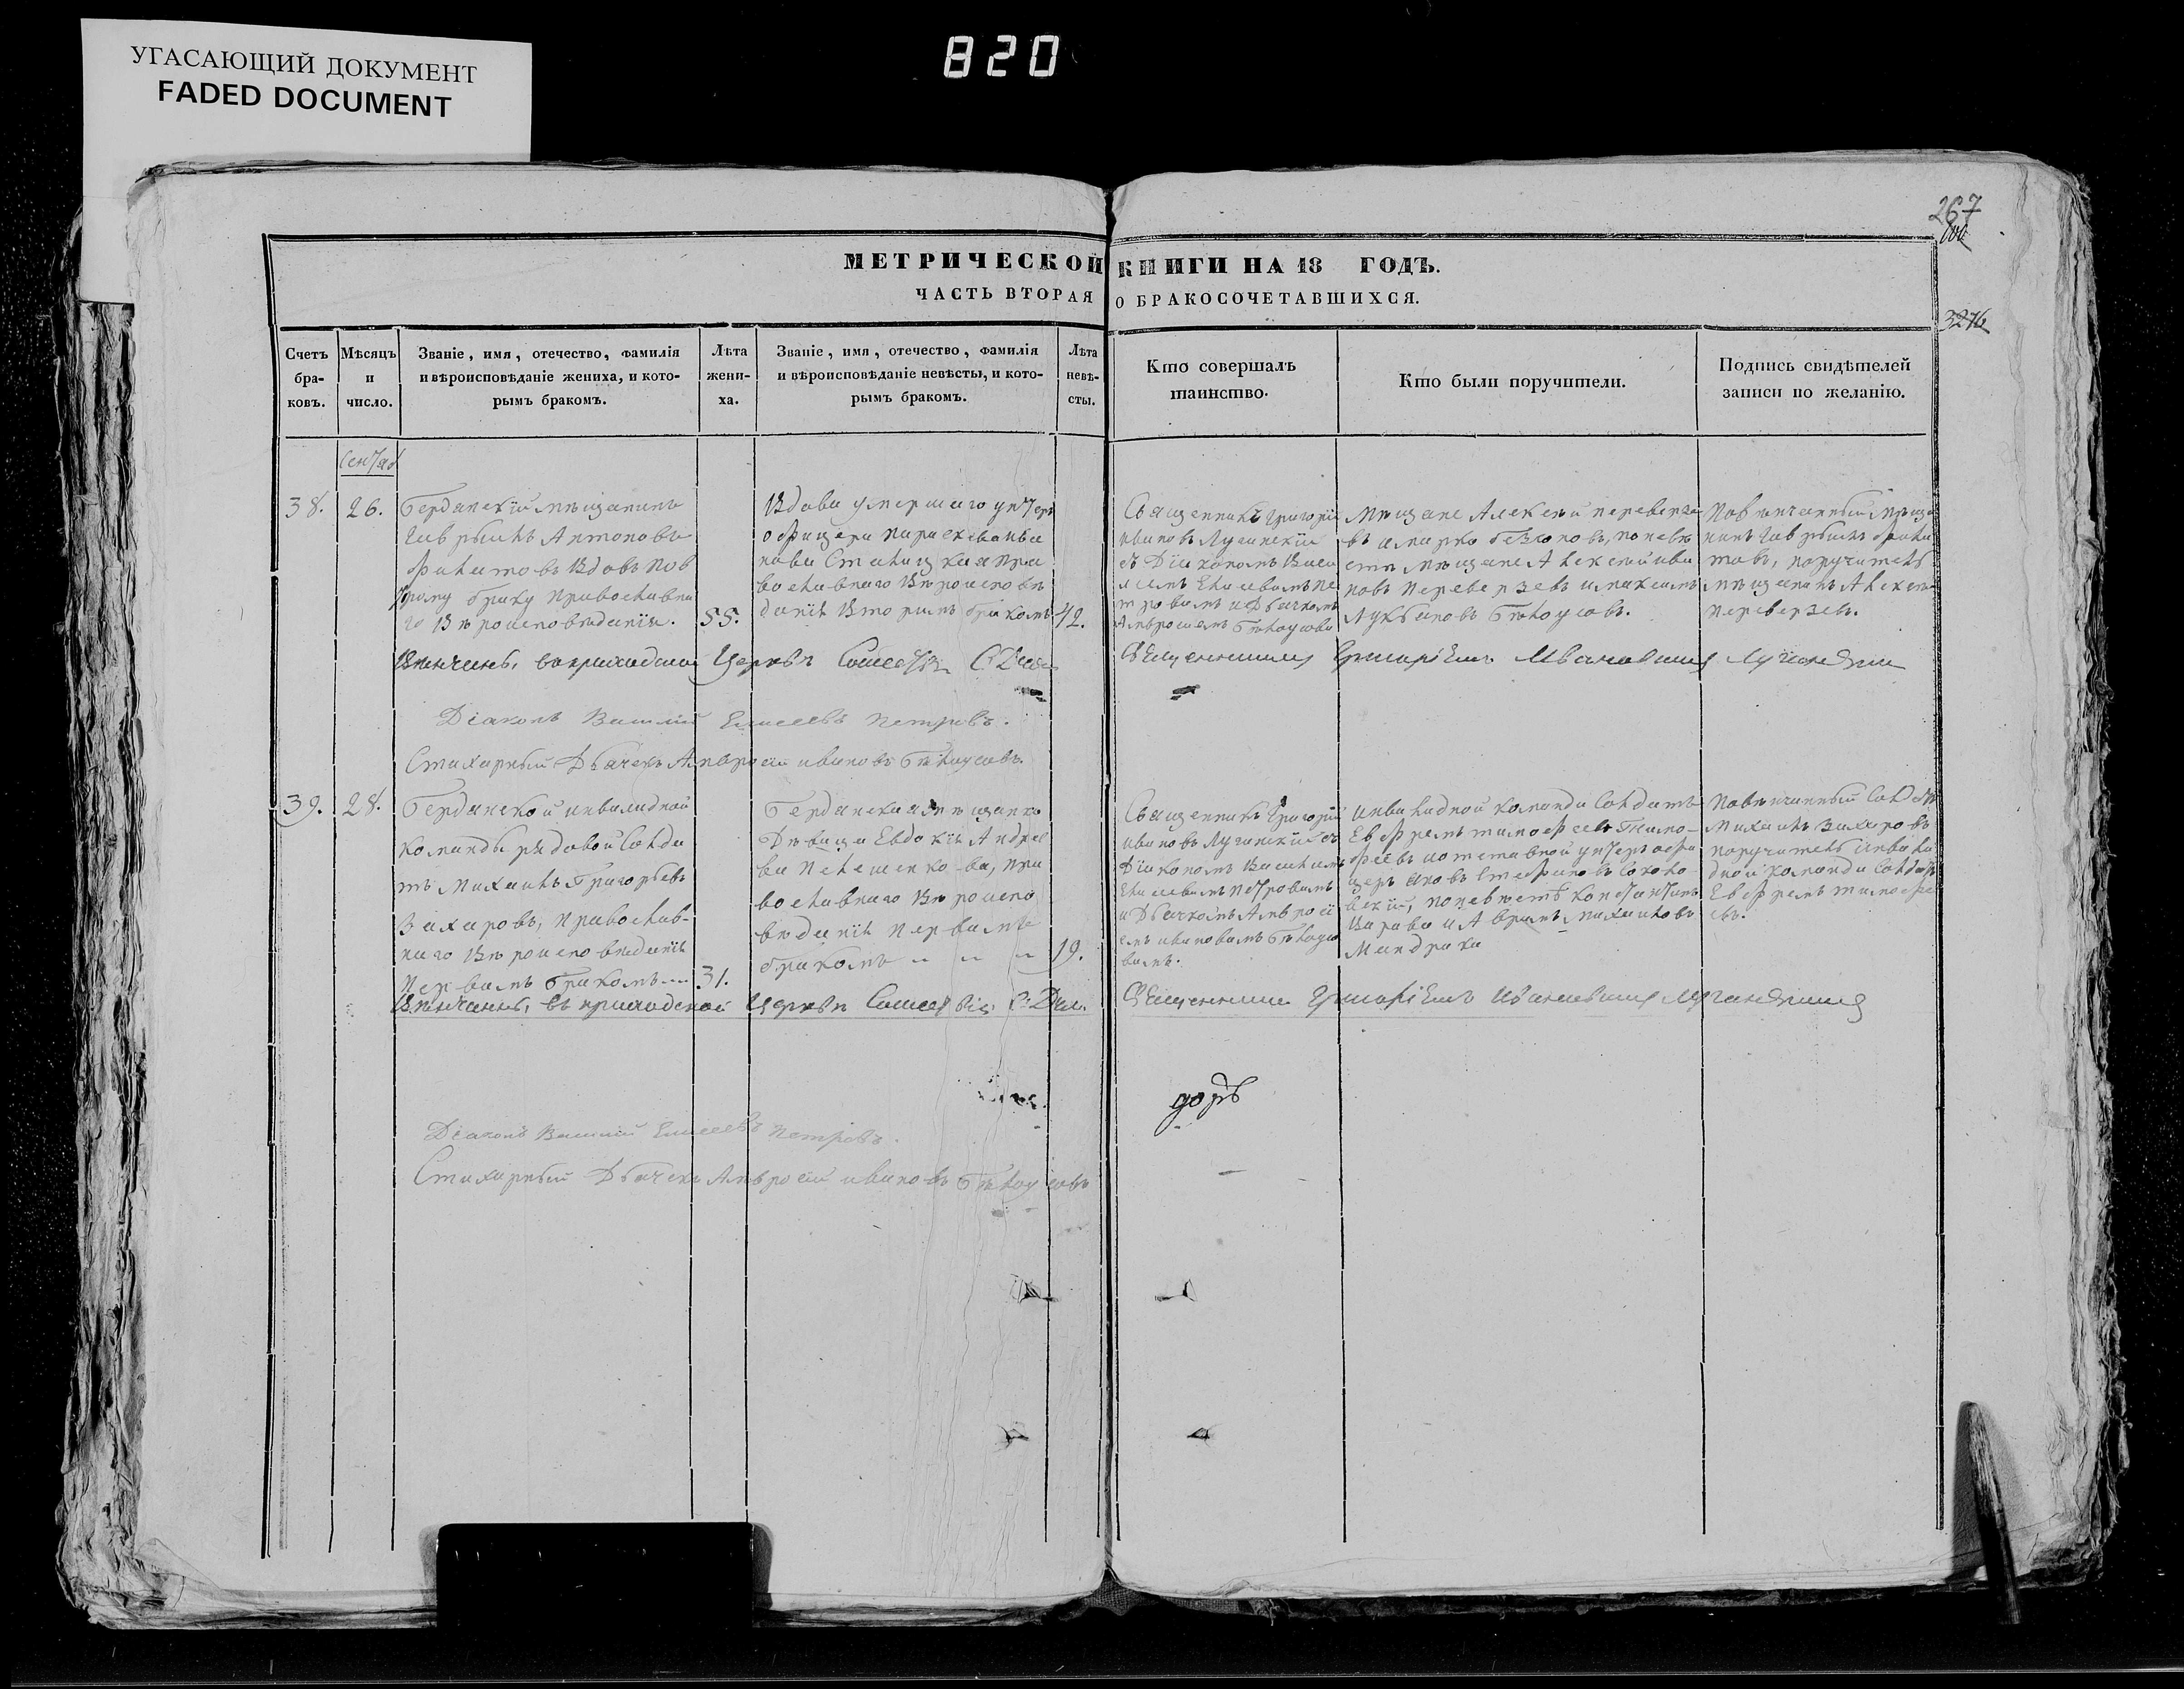 УГАСАЮЩИЙ ДОКУМЕНТ
FADED DOCUMENT
820
267
3276
МЕТРИЧЕСКОЙ КНИГИ НА 18 ГОДЪ.
ЧАСТЬ ВТОРАЯ О БРАКОСОЧЕТАВШИХСЯ.
Счетъ бра-ковъ.
Мѣсяцъ и число.
Званіе, имя, отечество, фамилія
и вѣроисповѣданіе жениха, и кото-
рымъ бракомъ.
Лѣта жени-ха.
Званіе, имя, отечество, фамилія
и вѣроисповѣданіе невѣсты, и кото-
рымъ бракомъ.
Лѣта невѣ-сты.
Кто совершалъ
таинство.
Кто были поручители.
Подпись свидѣтелей
записи по желанію.
38.
26.
Бердянскій мѣщанинъ
Гаврыилъ Антоновъ
Филатовъ Вдовъ
браку православна
го Вѣроисповѣданія.
55.
Вдова умершаго унтеръ
офицера
православнаго Вѣроисповѣ
данія вторымъ бракомъ
42.
Священникъ Григорій
Ивановъ Луганскій
съ Діакономъ Васи
Елисеевымъ Пе
тровымъ и Дьячкомъ
Амвросіемъ Бѣлоусовы
Мѣщане Алексѣй переверзе
въ и по невѣ
стѣ мѣщане Алексѣй ива
новъ Переверзевъ
Бѣлоусовъ.
Повѣнчанный мѣща
нинъ Гаврыилъ Фила
товъ, поручитель
мѣщанинъ Алексѣй
переверзевъ.
Вѣнчаны, въ приходской Церкви С. Духа Священникомъ Григоріемъ Ивановымъ Луганскимъ
Діаконъ Василий Елисеевъ Петровъ.
Стихарный Дьячекъ Амвросій ивановъ Бѣлоусовъ.
39.
28.
Бердянской инвалидной
команды рядовой Солда
тъ Михаилъ Григорьевъ
Захаровъ, Православ-
наго Вѣроисповѣданія
Первымъ бракомъ
31.
Бердянская мѣщанка
Дѣвица Евдокія Андрее
ва Пелешенко-ва, Пра
вославнаго Вѣроиспо
вѣданія первымъ
бракомъ
19.
Священникъ Григорій
Ивановъ Луганскій съ
Діакономъ Василіемъ
Елисеевымъ Петровымъ
и Дьячкомъ Амвросі
емъ ивановымъ Бѣлоусо
вымъ.
инвалидной команды Солдатъ
Ефремъ тимофеевъ Тимо-
феевъ и отставной унтеръ офи
церъ Яковъ Стефановъ Соколо
вскій, по невѣстѣ Константинъ
и Аврамъ Михаиловъ
Мандрыка
Повѣнчанный Солдатъ
Михаилъ Захаровъ
поручитель инвали
дной команды Солдатъ
Ефремъ тимофе
евъ.
Вѣнчаны, въ приходской Церкви С. Духа Священникомъ Григоріемъ Ивановымъ Луганскимъ
Діаконъ Василий Елисеевъ Петровъ.
Стихарный Дьячекъ Амвросій ивановъ Бѣлоусовъ